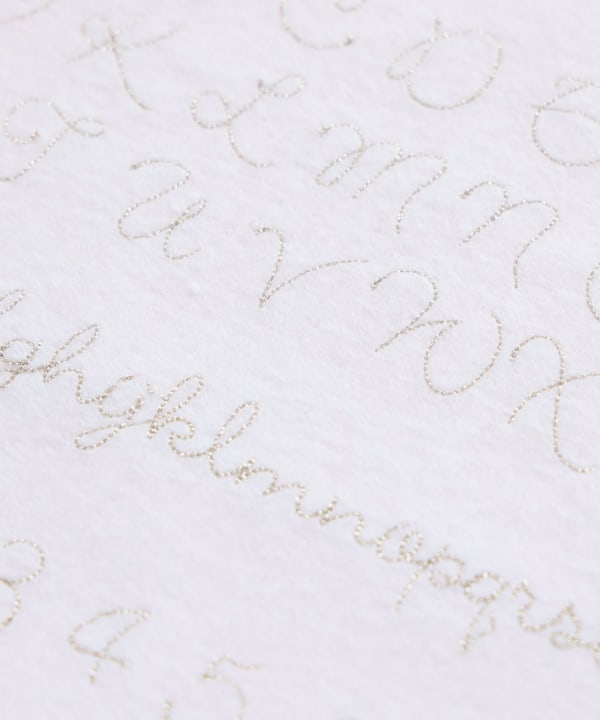 C D E
K L m n
T U V W X
ghijklmnopqrs
3 4 5